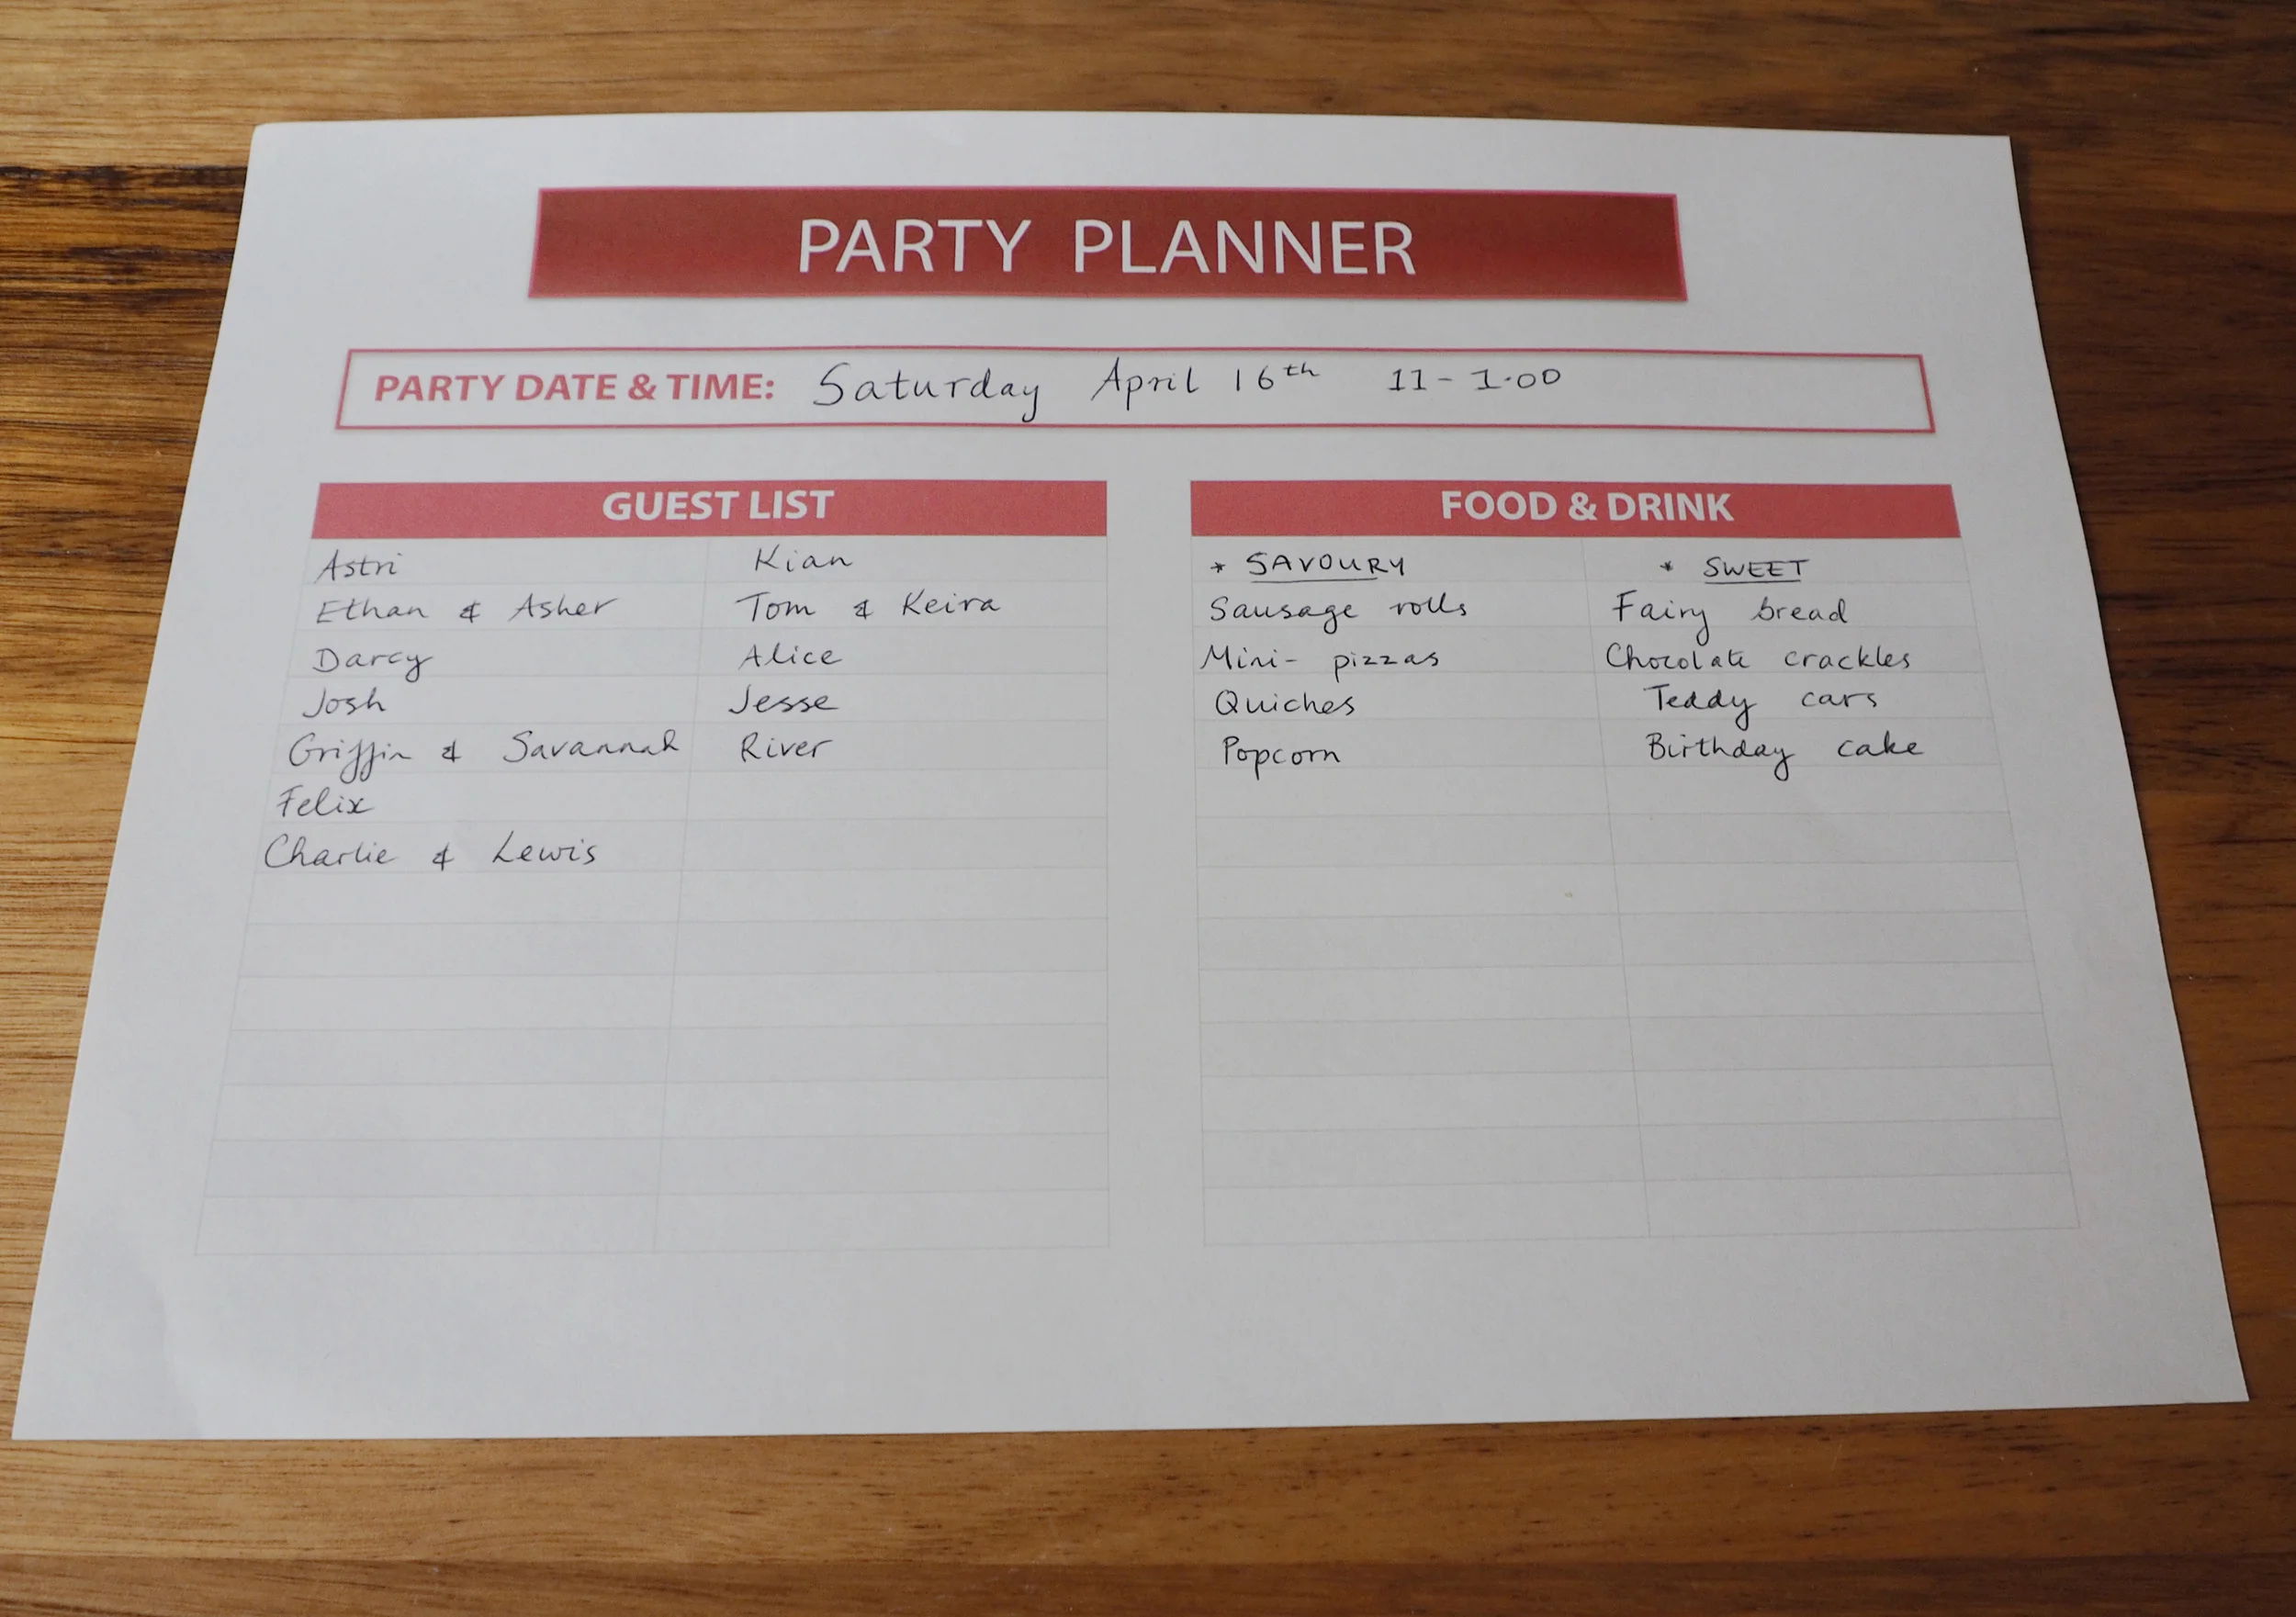 PARTY PLANNER
PARTY DATE & TIME: Saturday April 16th 11-1.00
GUEST LIST
Astri
Ethan & Asher
Darcy
Josh
Griffin & Savannah
Felix
Charlie & Lewis
Kian
Tom & Keira
Alice
Jesse
River
FOOD & DRINK
* SAVOURY
Sausage rolls
Mini- pizzas
Quiches
Popcorn
* SWEET
Fairy bread
Chocolate crackles
Teddy cars
Birthday cake